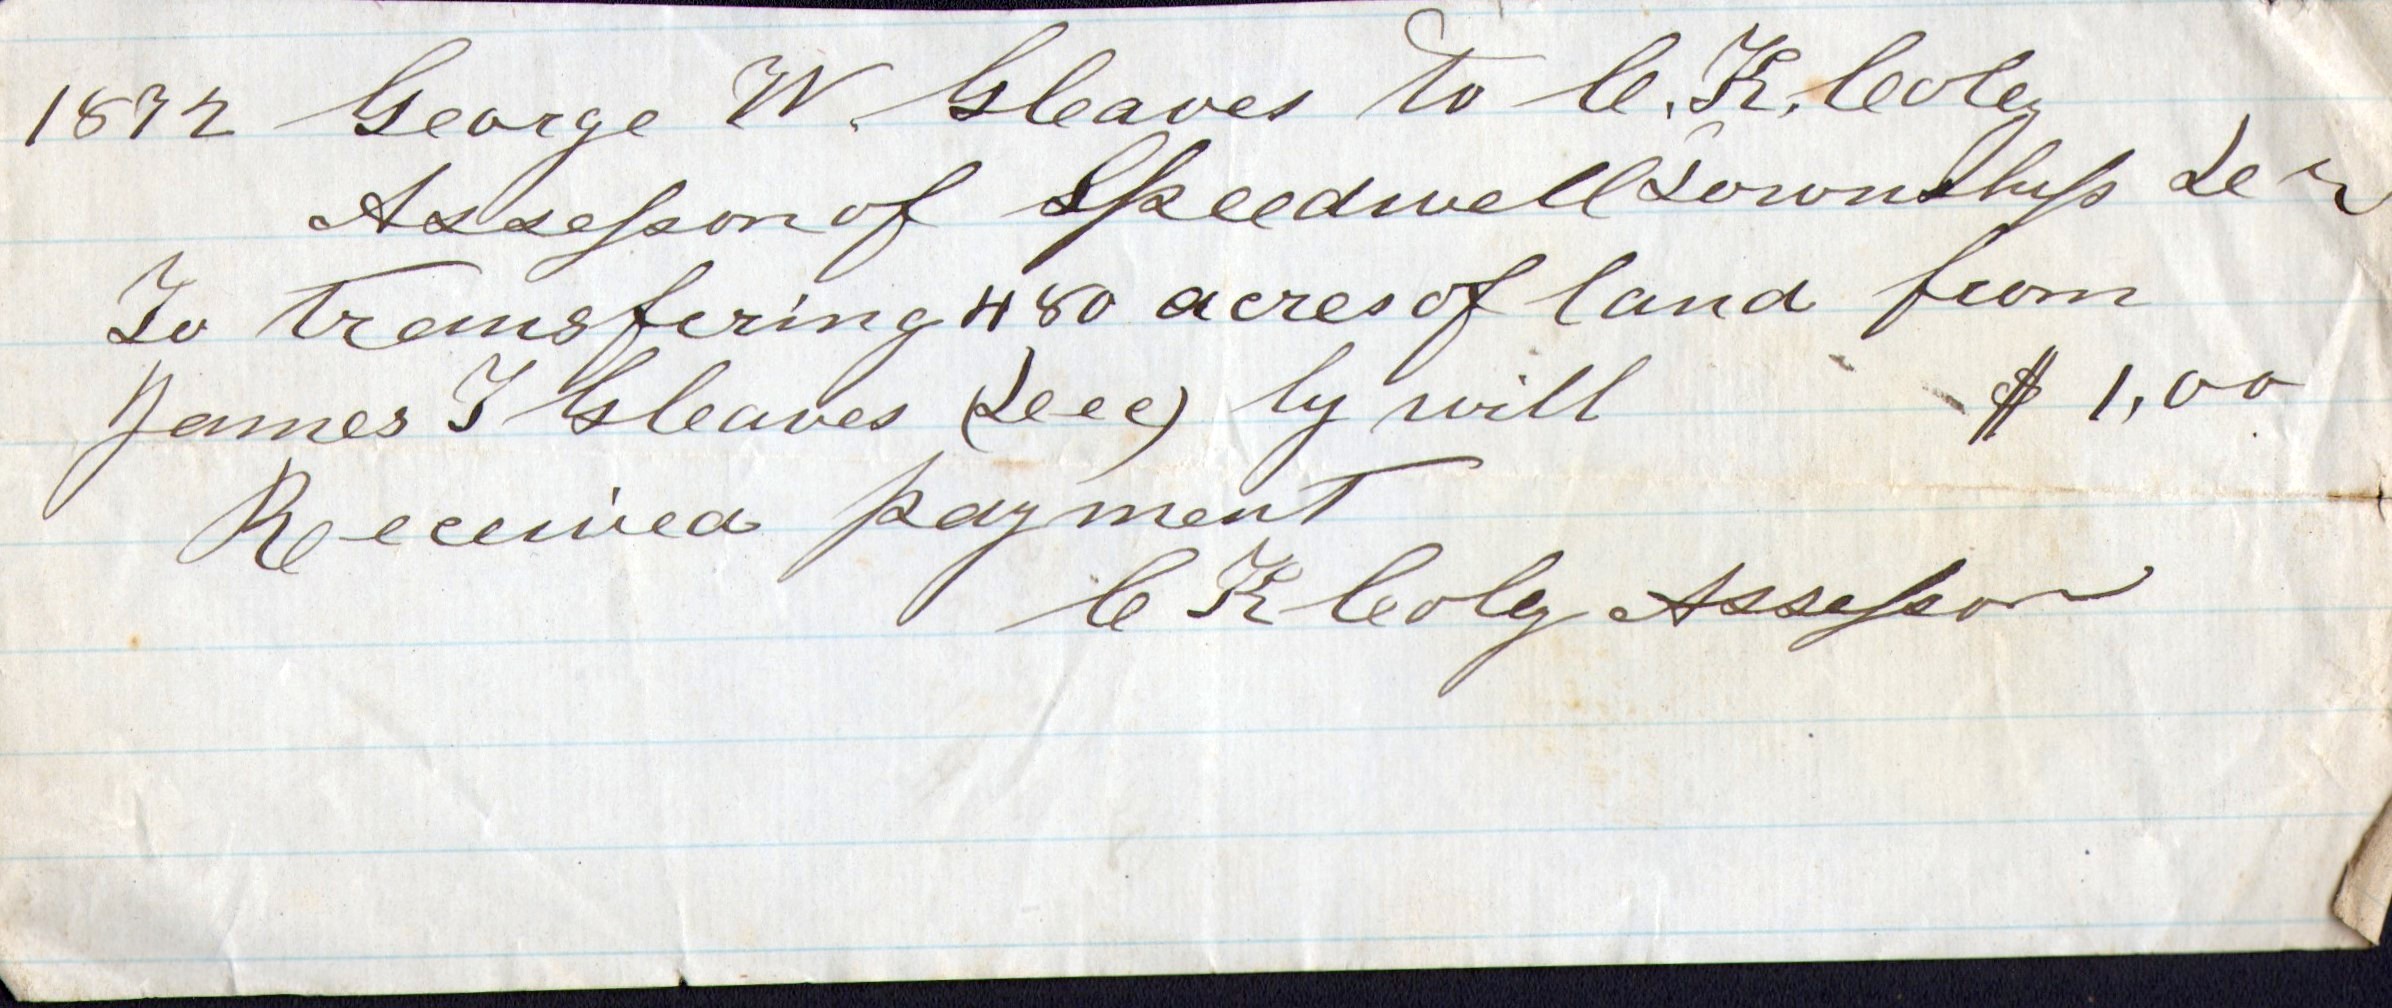 1872 George W. Gleaves To C. K. Coley
Assessor of Speedwell Township Dr
To Transfering 480 acres of land from
James T Gleaves (Dec) by will $ 1,00
Received payment
C K Coley Assessor